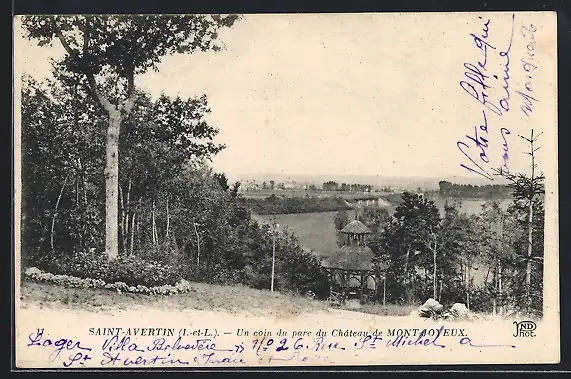 Votre fille qui
vous aime
Marguerite
SAINT-AVERTIN (I.-et-L.). — Un coin du parc du Château de MONTJOYEUX.
ND
PHOT.
Loger Villa Belvédère N° 26 Rue St Michel a
St Avertin Indre et Loire